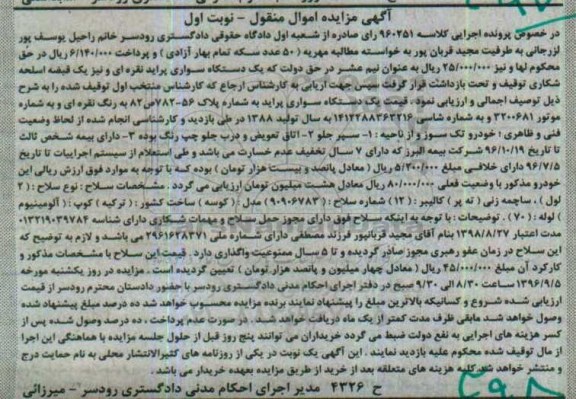 آگهی مزایده اموال منقول - نوبت اول
در خصوص پرونده اجرایی کلاسه ۹۶۰۲۵۱ رای صادره از شعبه اول دادگاه حقوقی دادگستری رودسر خانم راحیل یوسف پور
لزرجانی به طرفیت مجید قربان پور به خواسته مطالبه مهریه (۵۰ عدد سکه تمام بهار آزادی) و پرداخت ۶/۱۴۰/۰۰۰ ریال در حق
محکوم لها و نیز ۲۵/۰۰۰/۰۰۰ ریال به عنوان نیم عشر در حق دولت که یک دستگاه سواری پراید نقره ای و نیز یک قبضه اسلحه
شکاری توقیف و تحت بازداشت قرار گرفت سپس جهت اریابی به کارشناس ارجاع که کارشناس منتخب اول توقیف شده را به شرح
ذیل توصیف اجمالی و ارزیابی نمود، قیمت یک دستگاه سواری پراید به شماره پلاک ۵۶-۷۸۲ص۸۲ به رنگ نقره ای و به شماره
موتور ۳۲۰۰۶۸۱ و به شماره شاسی ۱۴۱۲۲۸۸۳۶۳۲۱۶ به سال تولید ۱۳۸۸ در طی بازدید و کارشناسی انجام شده از لحاظ وضعیت
فنی و ظاهری: خودرو تک سوز و از ناحیه: ۱- سپر جلو ۲- اتاق تعویض و درب جلو چپ رنگ بوده ۳- دارای بیمه شخص ثالث
تا تاریخ ۹۶/۱۰/۱۹ شرکت بیمه البرز که دارای ۷ سال تخفیف عدم خسارت می باشد و طی استعلام از سیستم اجراییات تا تاریخ
۹۶/۷/۵ دارای خلافی مبلغ ۵/۲۰۰/۰۰۰ ریال (معادل پانصد و بیست هزار تومان) بوده که با توجه به موارد فوق ارزش ریالی این
خودرو مذکور با وضعیت فعلی ۸۰/۰۰۰/۰۰۰ ریال معادل هشت میلیون تومان ارزیابی می گردد. مشخصات سلاح: نوع سلاح: (۲
لول)، ساچمه زنی (ته پر) کالیبر: (۱۲) شماره سلاح: (۹۰۹۰۶۷۸۳) مدل: (کوسه) ساخت کشور: (ترکیه) کوپ: (آلومینیوم
) لوله: (۷۰). توضیحات: با توجه به اینکه سلاح فوق دارای مجوز حمل سلاح و مهمات شکاری دارای شناسه ۰۱۳۲۱۹۰۳۹۷۸۴
مدت اعتبار ۱۳۹۸/۸/۲۷ بنام آقای مجید قربانپور فرزند مصطفی دارای شماره ملی ۲۹۶۱۶۲۸۳۷۱ می باشد و لازم به توضیح که
این سلاح در زمان عفو رهبری مجوز صادر گردیده و تا ۵ سال ممنوعیت واگذاری دارد. قیمت این سلاح با مشخصات مذکور و
کارکرد آن مبلغ ۴۵/۰۰۰/۰۰۰ ریال (معادل چهار میلیون و پانصد هزار تومان) تعیین گردیده است. مزایده در روز یکشنبه مورخه
۱۳۹۶/۹/۵ ساعت ۸/۳۰ الی ۹/۳۰ صبح در دفتر اجرای احکام مدنی دادگستری رودسر با حضور دادستان محترم رودسر از قیمت
ارزیابی شده شروع و کسانیکه بالاترین مبلغ را پیشنهاد نمایند برنده مزایده محسوب خواهد شد ده درصد مبلغ پیشنهاد شده
وصول خواهد شد مابقی ظرف مدت کمتر از یک ماه دریافت خواهد شد. در صورت عدم پرداخت، ده درصد وصول شده پس از
کسر هزینه های اجرایی به نفع دولت ضبط می گردد خریداران می توانند پنج روز قبل از حلول جلسه مزایده با هماهنگی این اجرا
از مال توقیف شده محکوم علیه بازدید نمایند. این آگهی یک نوبت در یکی از روزنامه های کثیرالانتشار محلی به نام حمایت درج
و منتشر خواهد شد کلیه هزینه های متعلقه بعد از خرید از طریق مزایده بعهده خریدار می باشد.
ح ۴۳۲۶ مدیر اجرای احکام مدنی دادگستری رودسر - میرزائی